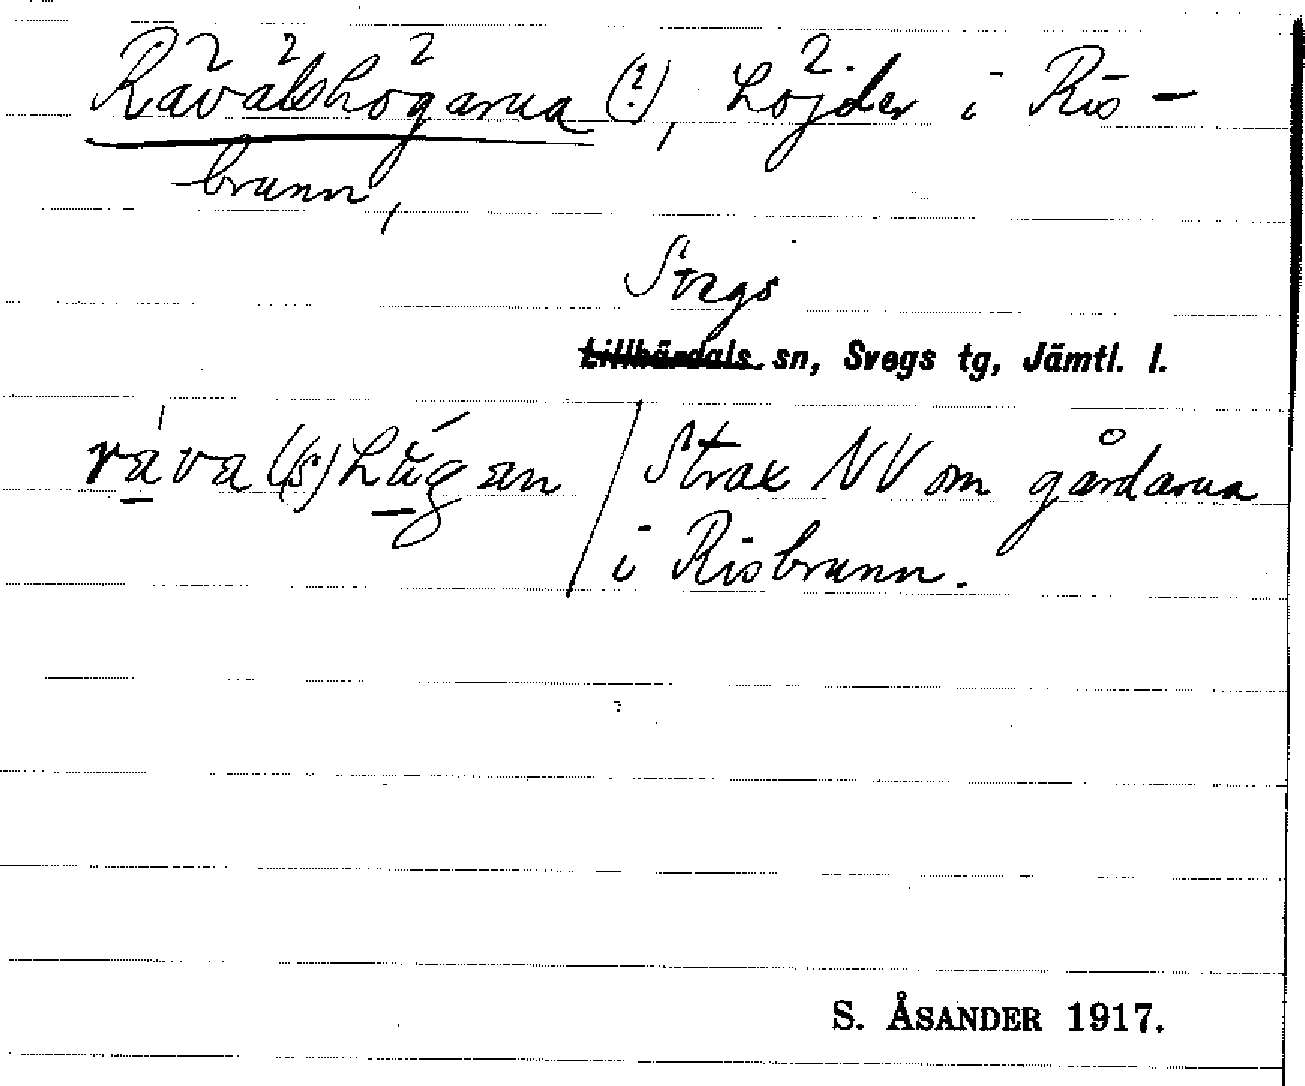 Rävälshögarna (?), höjder i Ris-
brunn,
Svegs
Lillhärdals sn, Svegs tg, Jämtl. l.
räva(s)hu̇gan / Strax NV om gårdarna
i Risbrunn.
S. ÅSANDER 1917.